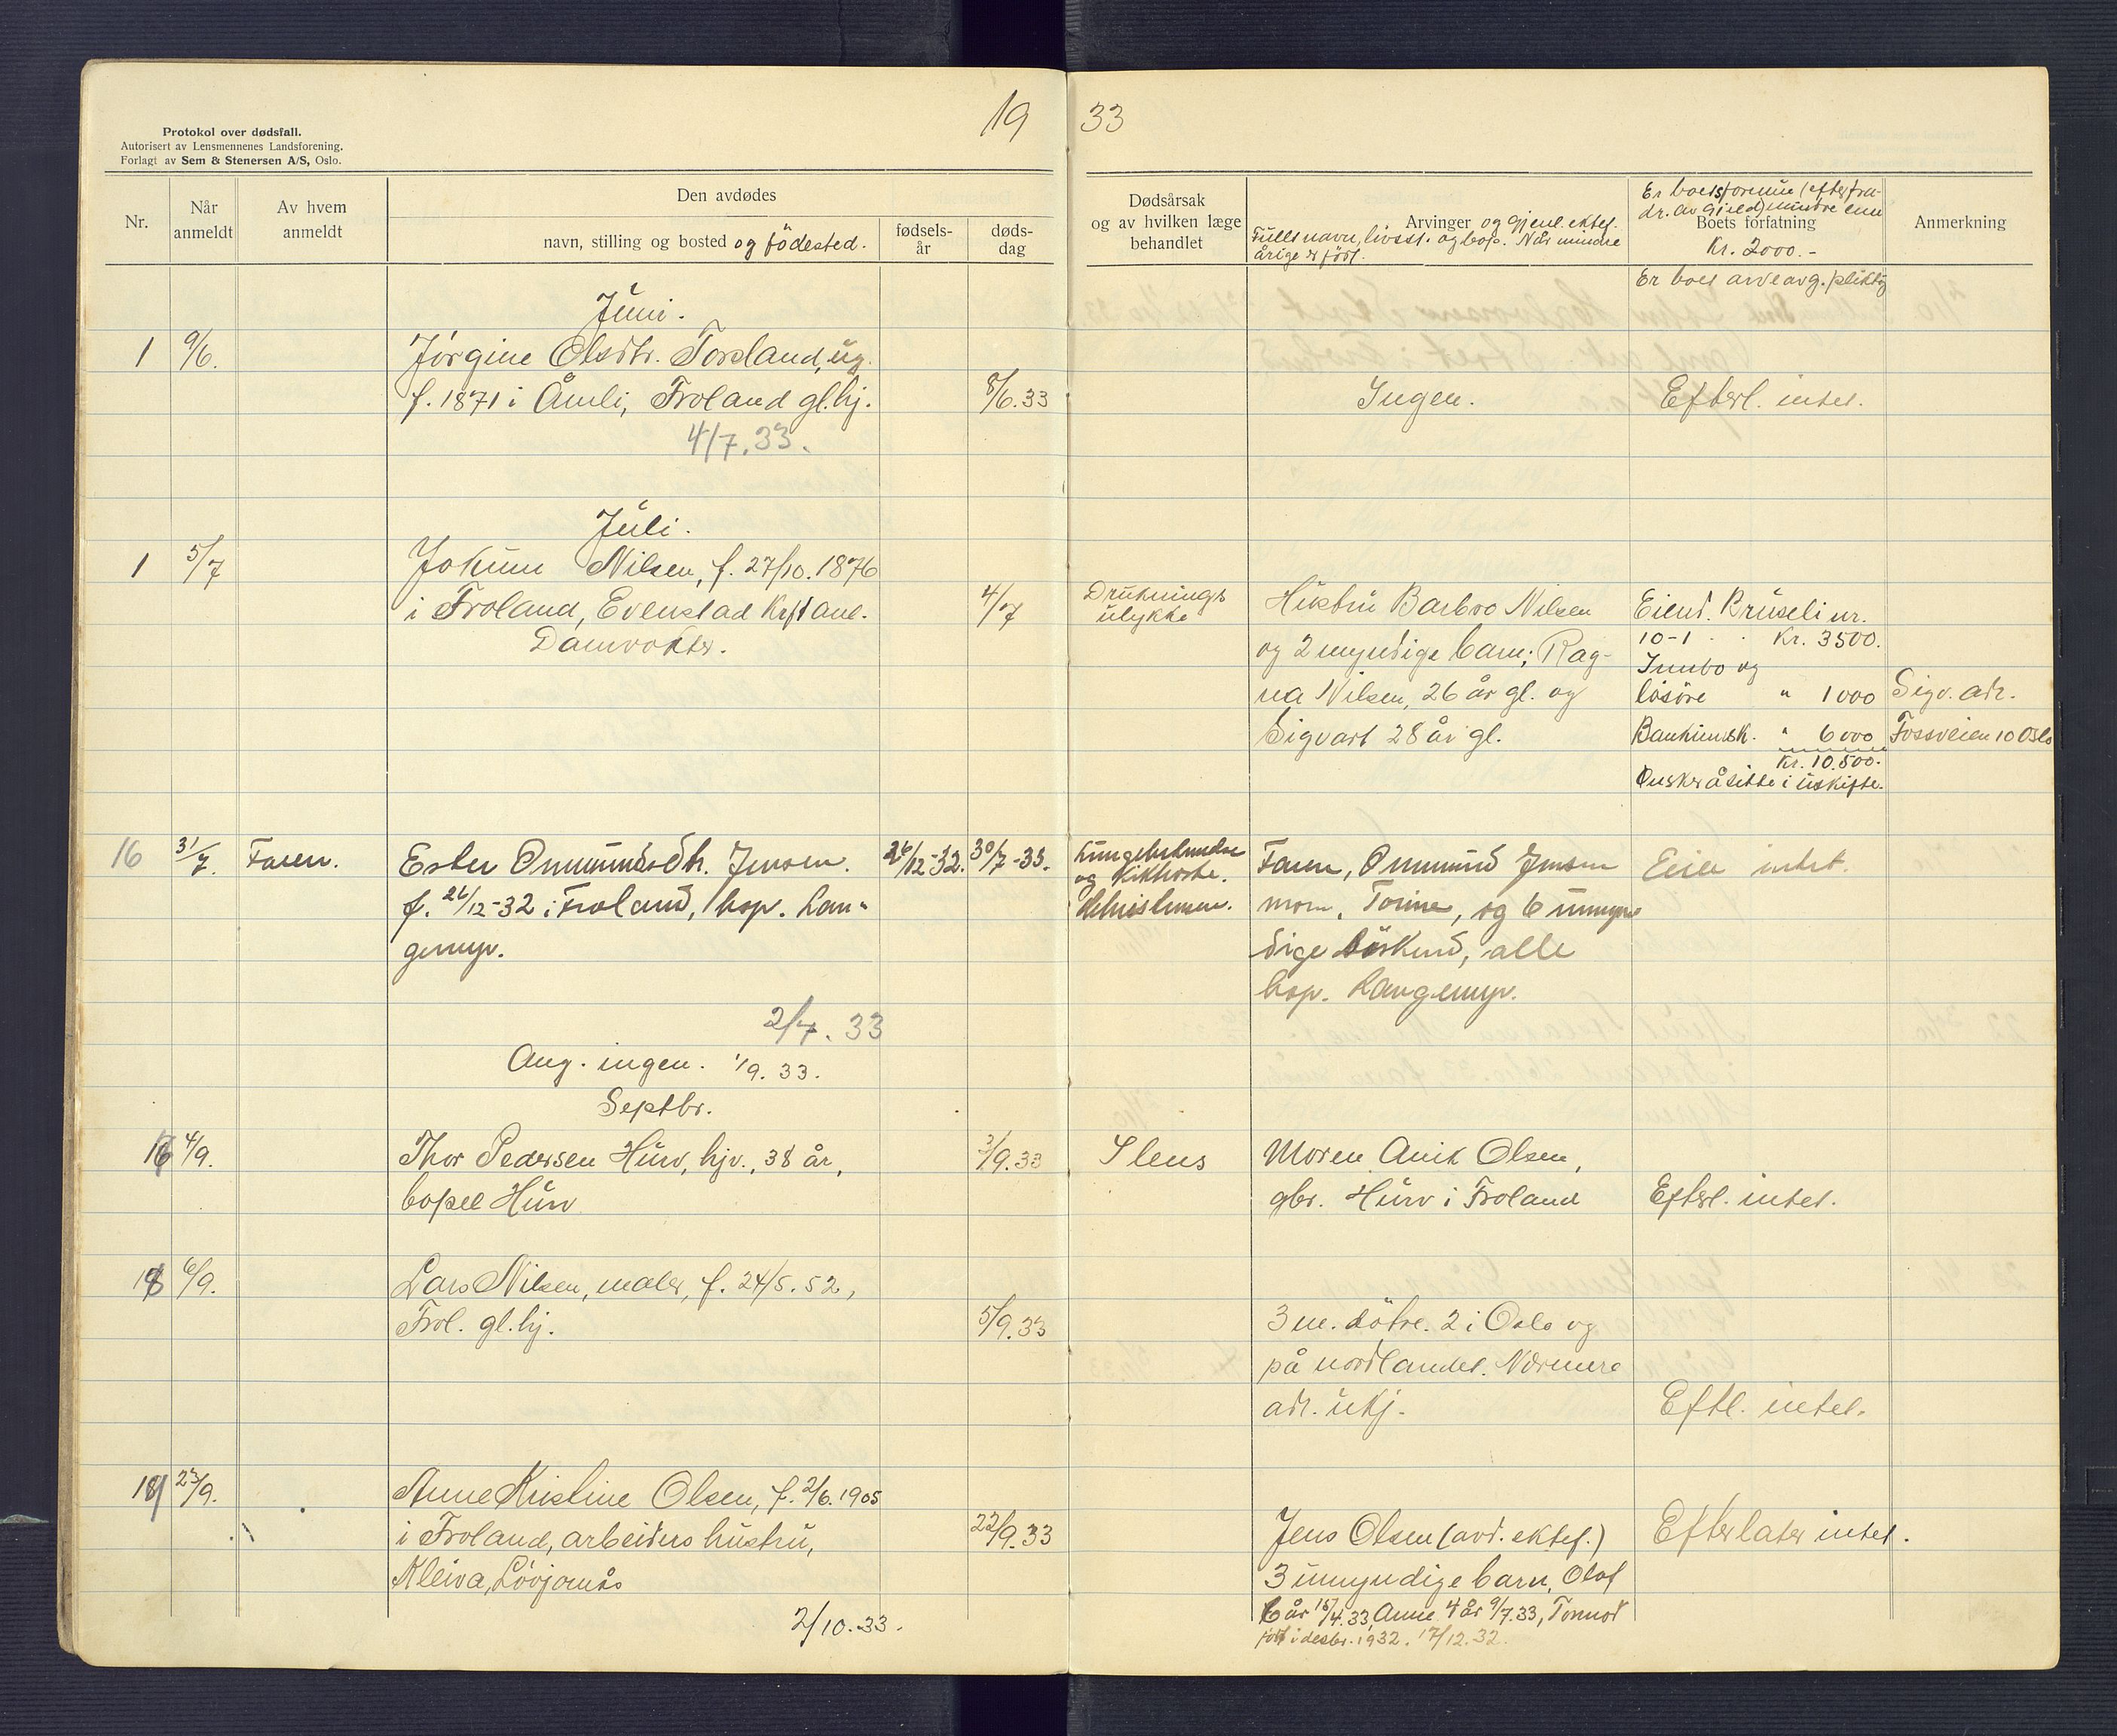 19 33
Protokol over dødsfall.
Autorisert av Lensmennenes Landsforening.
Forlagt av Sem & Stenersen A/S, Oslo.
Nr.
Når anmeldt
Av hvem anmeldt
Den avdødes
navn, stilling og bosted og födested.
fødsels-år
døds-dag
Dødsårsak
og av hvilken læge
behandlet
Arvinger og gjenl. ektef.
Fullt navn, livsst. og bop. Når mindre
årige er født.
Er boets formue (efter fra-
dr. av gjeld) mindre enn
Boets forfatning
Kr. 2000.-
Er boet arveavg. pliktig
Anmerkning
Juni.
1 9/6. Jørgine Olsdtr. Torsland, ug.
f. 1871 i Åmli, Froland gl.hj. 8/6.33 Ingen. Efterl. intet.
4/7.33.
Juli.
1 5/7 Jokum Nilsen, f. 27/10.1876
i Froland, Evenstad Krftanl. 4/7
Damvokter.
Druknings
ulykke
Hustru Barbro Nilsen
og 2 myndige barn; Rag-
na Nilsen, 26 år gl. og
Sigvart 28 år gl.
Eiend. Bruseli nr.
10-1 Kr. 3500.
Innbo og
løsöre " 1000
Bankinnsk. " 6000
Kr. 10.500.
Ønsker å sitte i uskifte.
Sigv. adr.
Fossveien 10 Oslo
16 31/7. Faren. Ester Ommundsdtr. Jensen. 26/12-32. 30/7-33.
f. 26/12-32 i Froland, bop. Lan-
gemyr.
Lungebetendelse
og Kikhoste.
Faren, Ommund Jensen
mor, Torine, og 6 umyn
dige søsken, alle
bop. Langemyr.
Eier intet.
2/7.33
Aug. ingen. 1/9.33.
Septbr.
4/9. Thor Pedersen Hurv, hjv., 38 år, 3/9.33
bopel Hurv
Moren Anik Olsen,
gbr. Hurv i Froland
Efterl. intet.
6/9. Lars Nilsen, maler, f. 24/5.52,
Frol. gl.hj. 5/9.33
3 m. døtre. 2 i Oslo og
på nordlandet. Nærmere
adr. ukj.
Eftl. intet.
23/9. Anne Kristine Olsen, f. 2/6.1905
i Froland, arbeiders hustru, 22/9.33
Kleiva, Løvjomås
Jens Olsen (avd. ektef.)
3 umyndige barn, Olaf
6 år 15/4.33, Anne 4 år 9/7.33, Tormod
født i desbr. 1932. 17/12.32.
Efterlater intet.
2/10.33.